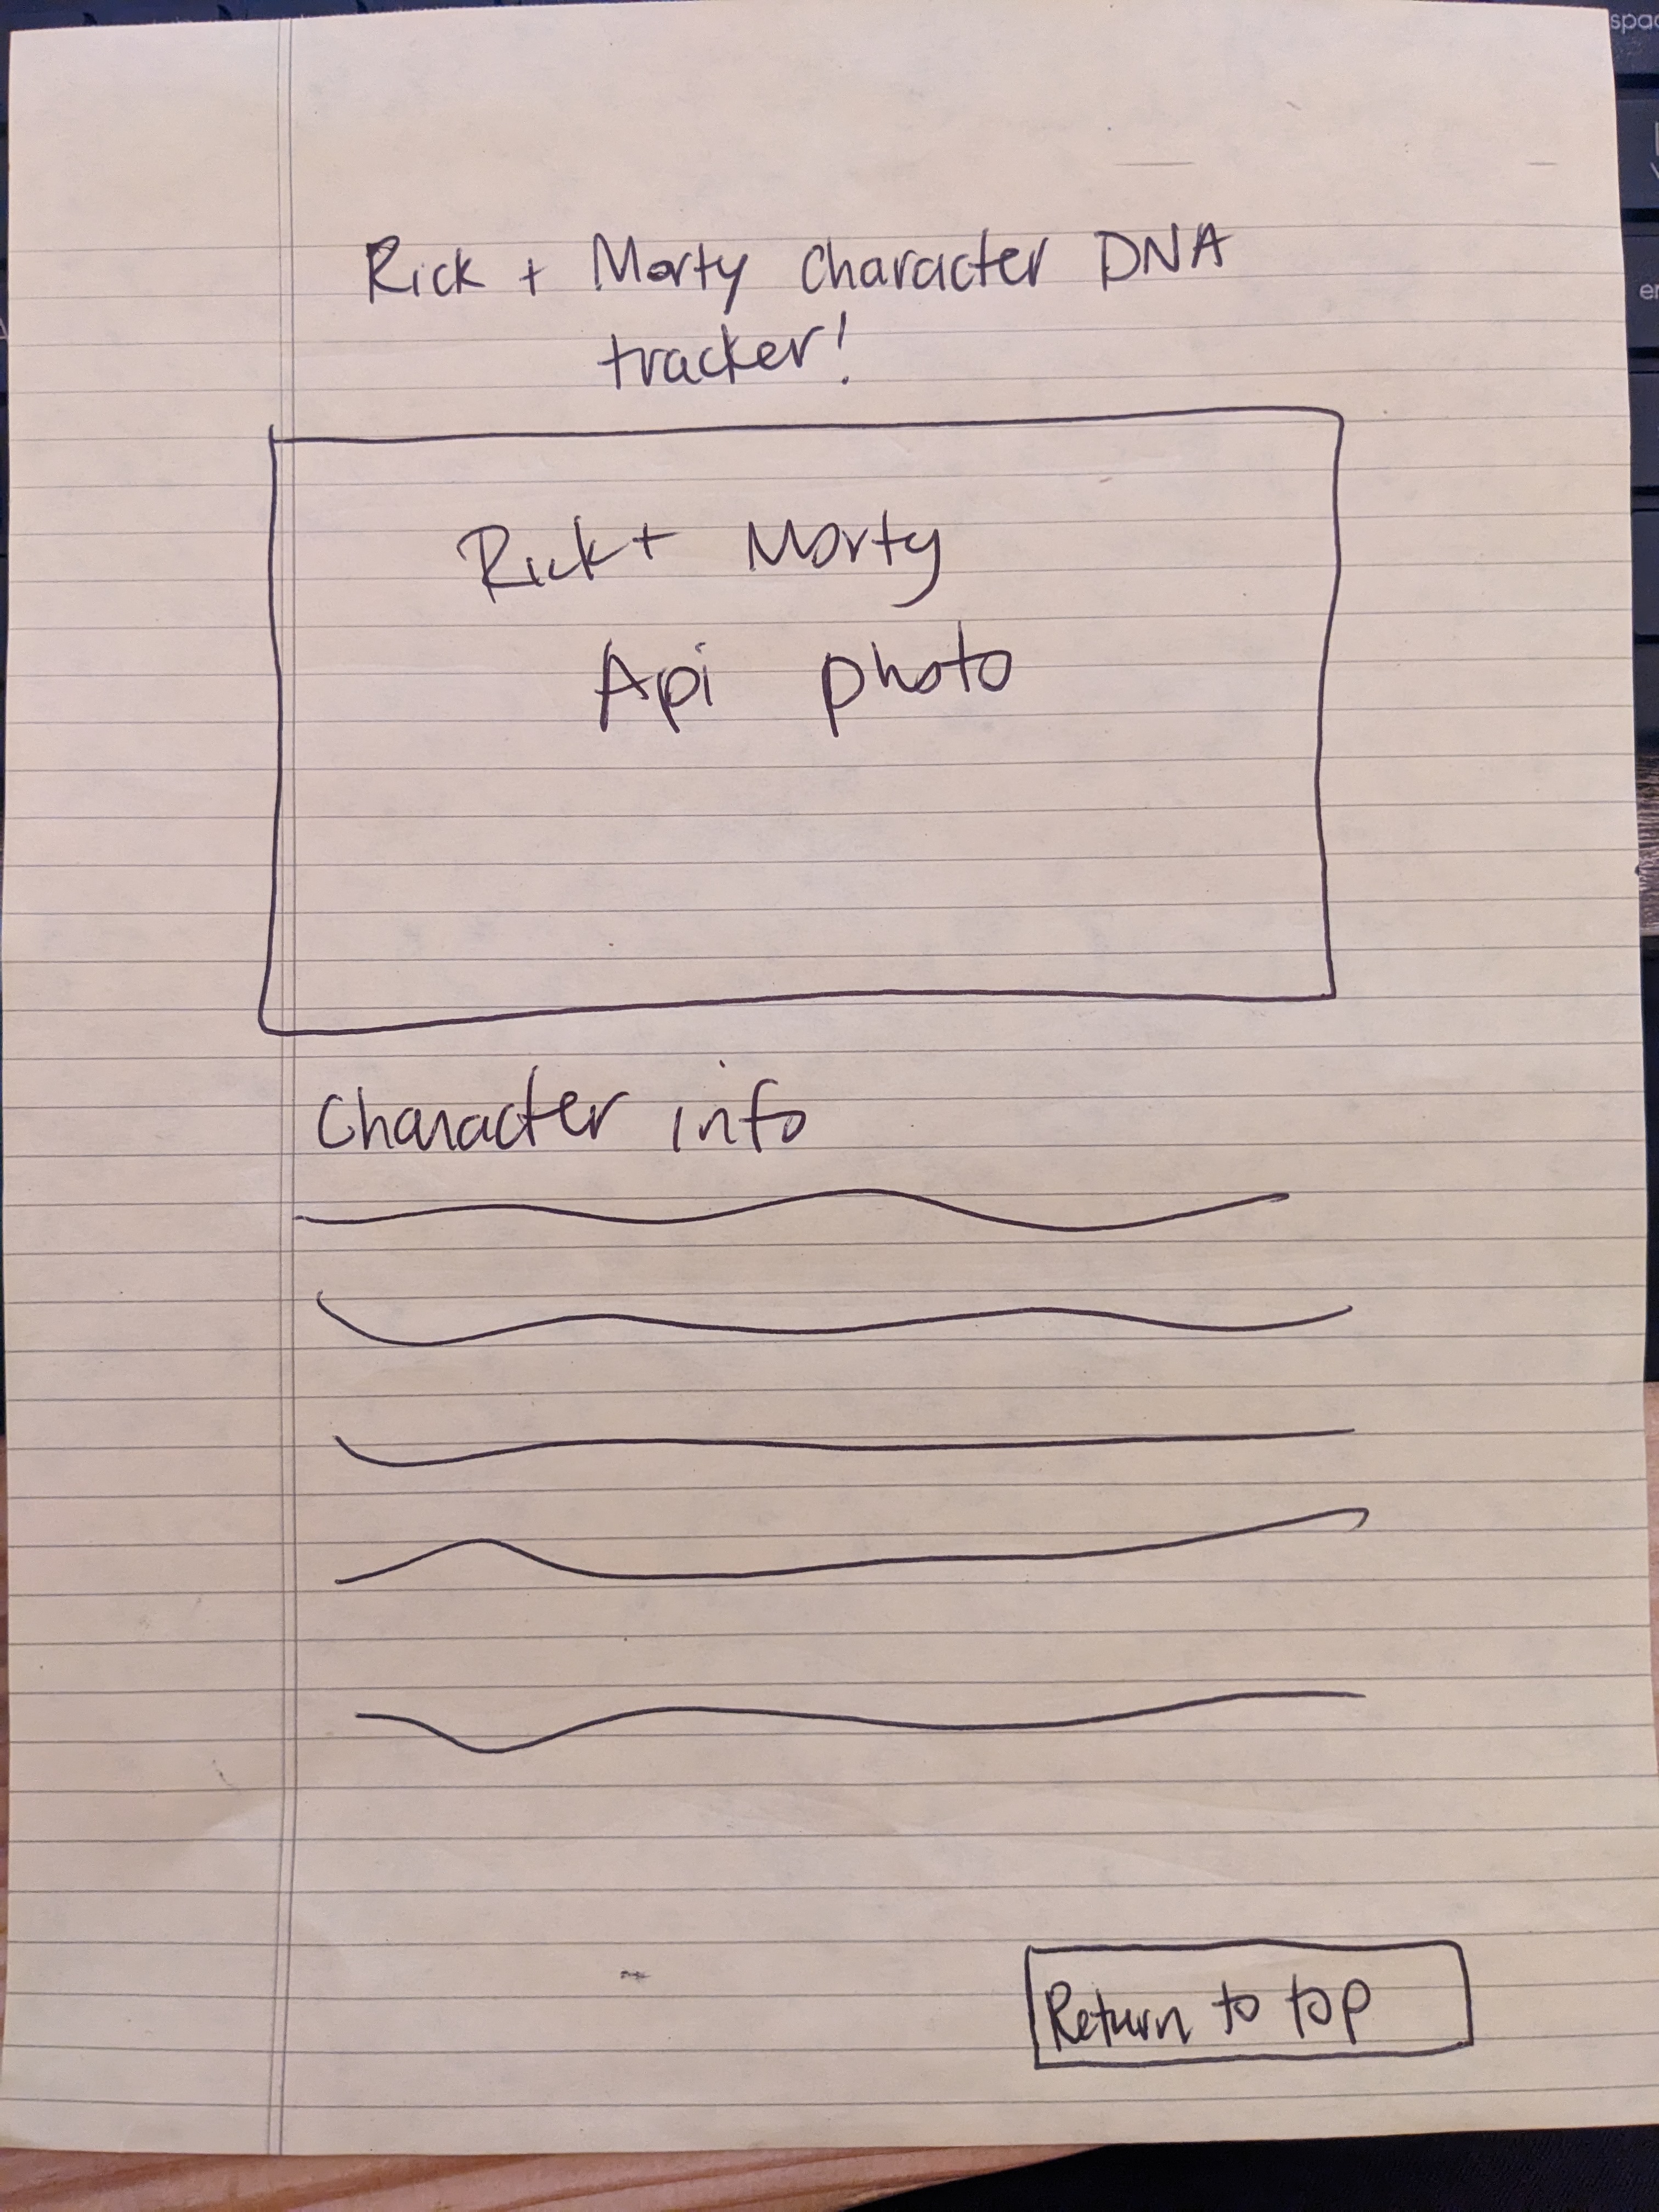 Rick + Morty Character DNA
tracker!
Rick + Morty
Api photo
Character info
Return to top